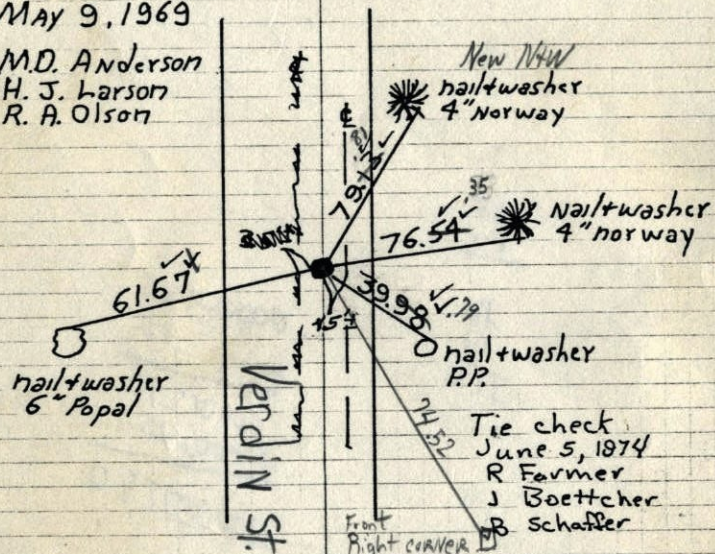 May 9, 1969
M.D. Anderson
H. J. Larson
R. A. Olson
New N+W
nail+washer
4" Norway
℄
.81
.35
76.54
Nail+washer
4" norway
61.67
39.98
.79
nail+washer
6" Popal
nail+washer
P.P.
Verdin St.
74.52
Tie check
June 5, 1974
R Farmer
J Boettcher
B Schaffer
Front
Right corner